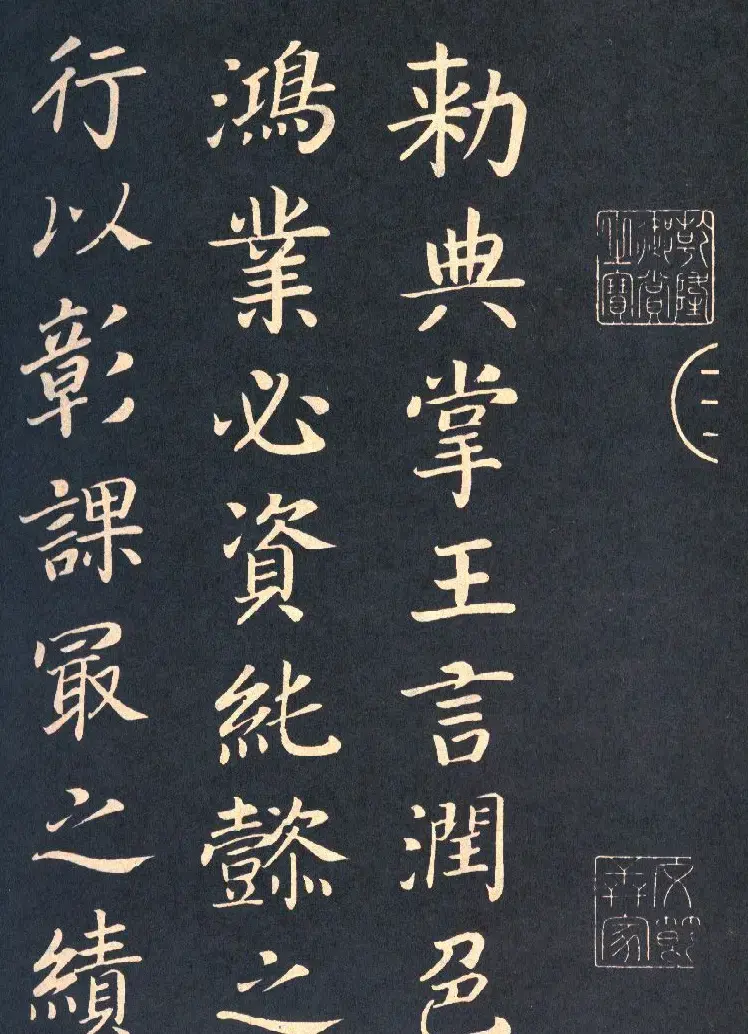 乾隆御賞之寶
勑典掌王言潤色
鴻業必資純懿之
行以彰課㝡之績